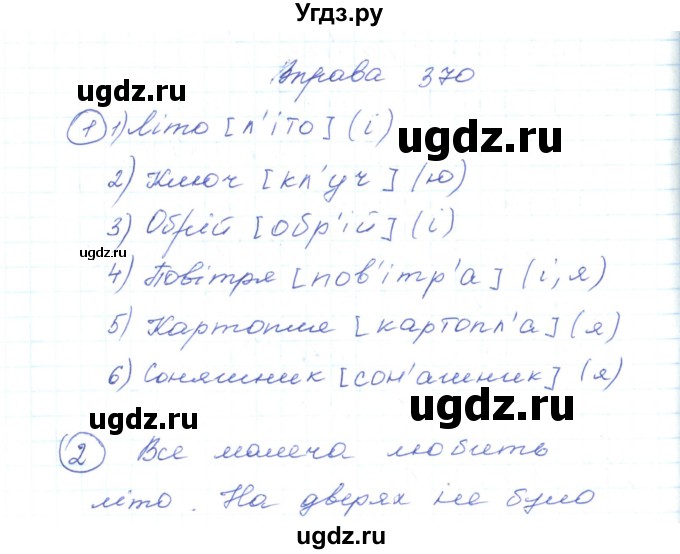 Угдз.ру
Вправа 370
ugdz.ru
ugdz.ru
1 1) Літо [л'іто] (і)
ugdz.ru
2) Ключ [кл'уч] (ю)
3) Обрій [обр'ій] (і)
ugdz.ru
4) Повітря [пов'ітр'а] (і, я)
5) Картопля [картопл'а] (я)
6) Соняшник [сон'ашник] (я)
ugdz.ru
ugdz.ru
2 Вся малеча любить
ugdz.ru
літо. На дверях не було
ugdz.ru